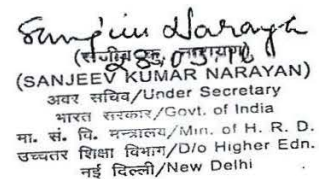 Sanjeev Narayan
(संजीव कु. नारायण)
28.03.18
(SANJEEV KUMAR NARAYAN)
अवर सचिव/Under Secretary
भारत सरकार/Govt. of India
मा. सं. वि. मन्त्रालय/Min. of H. R. D.
उच्चतर शिक्षा विभाग/D/o Higher Edn.
नई दिल्ली/New Delhi